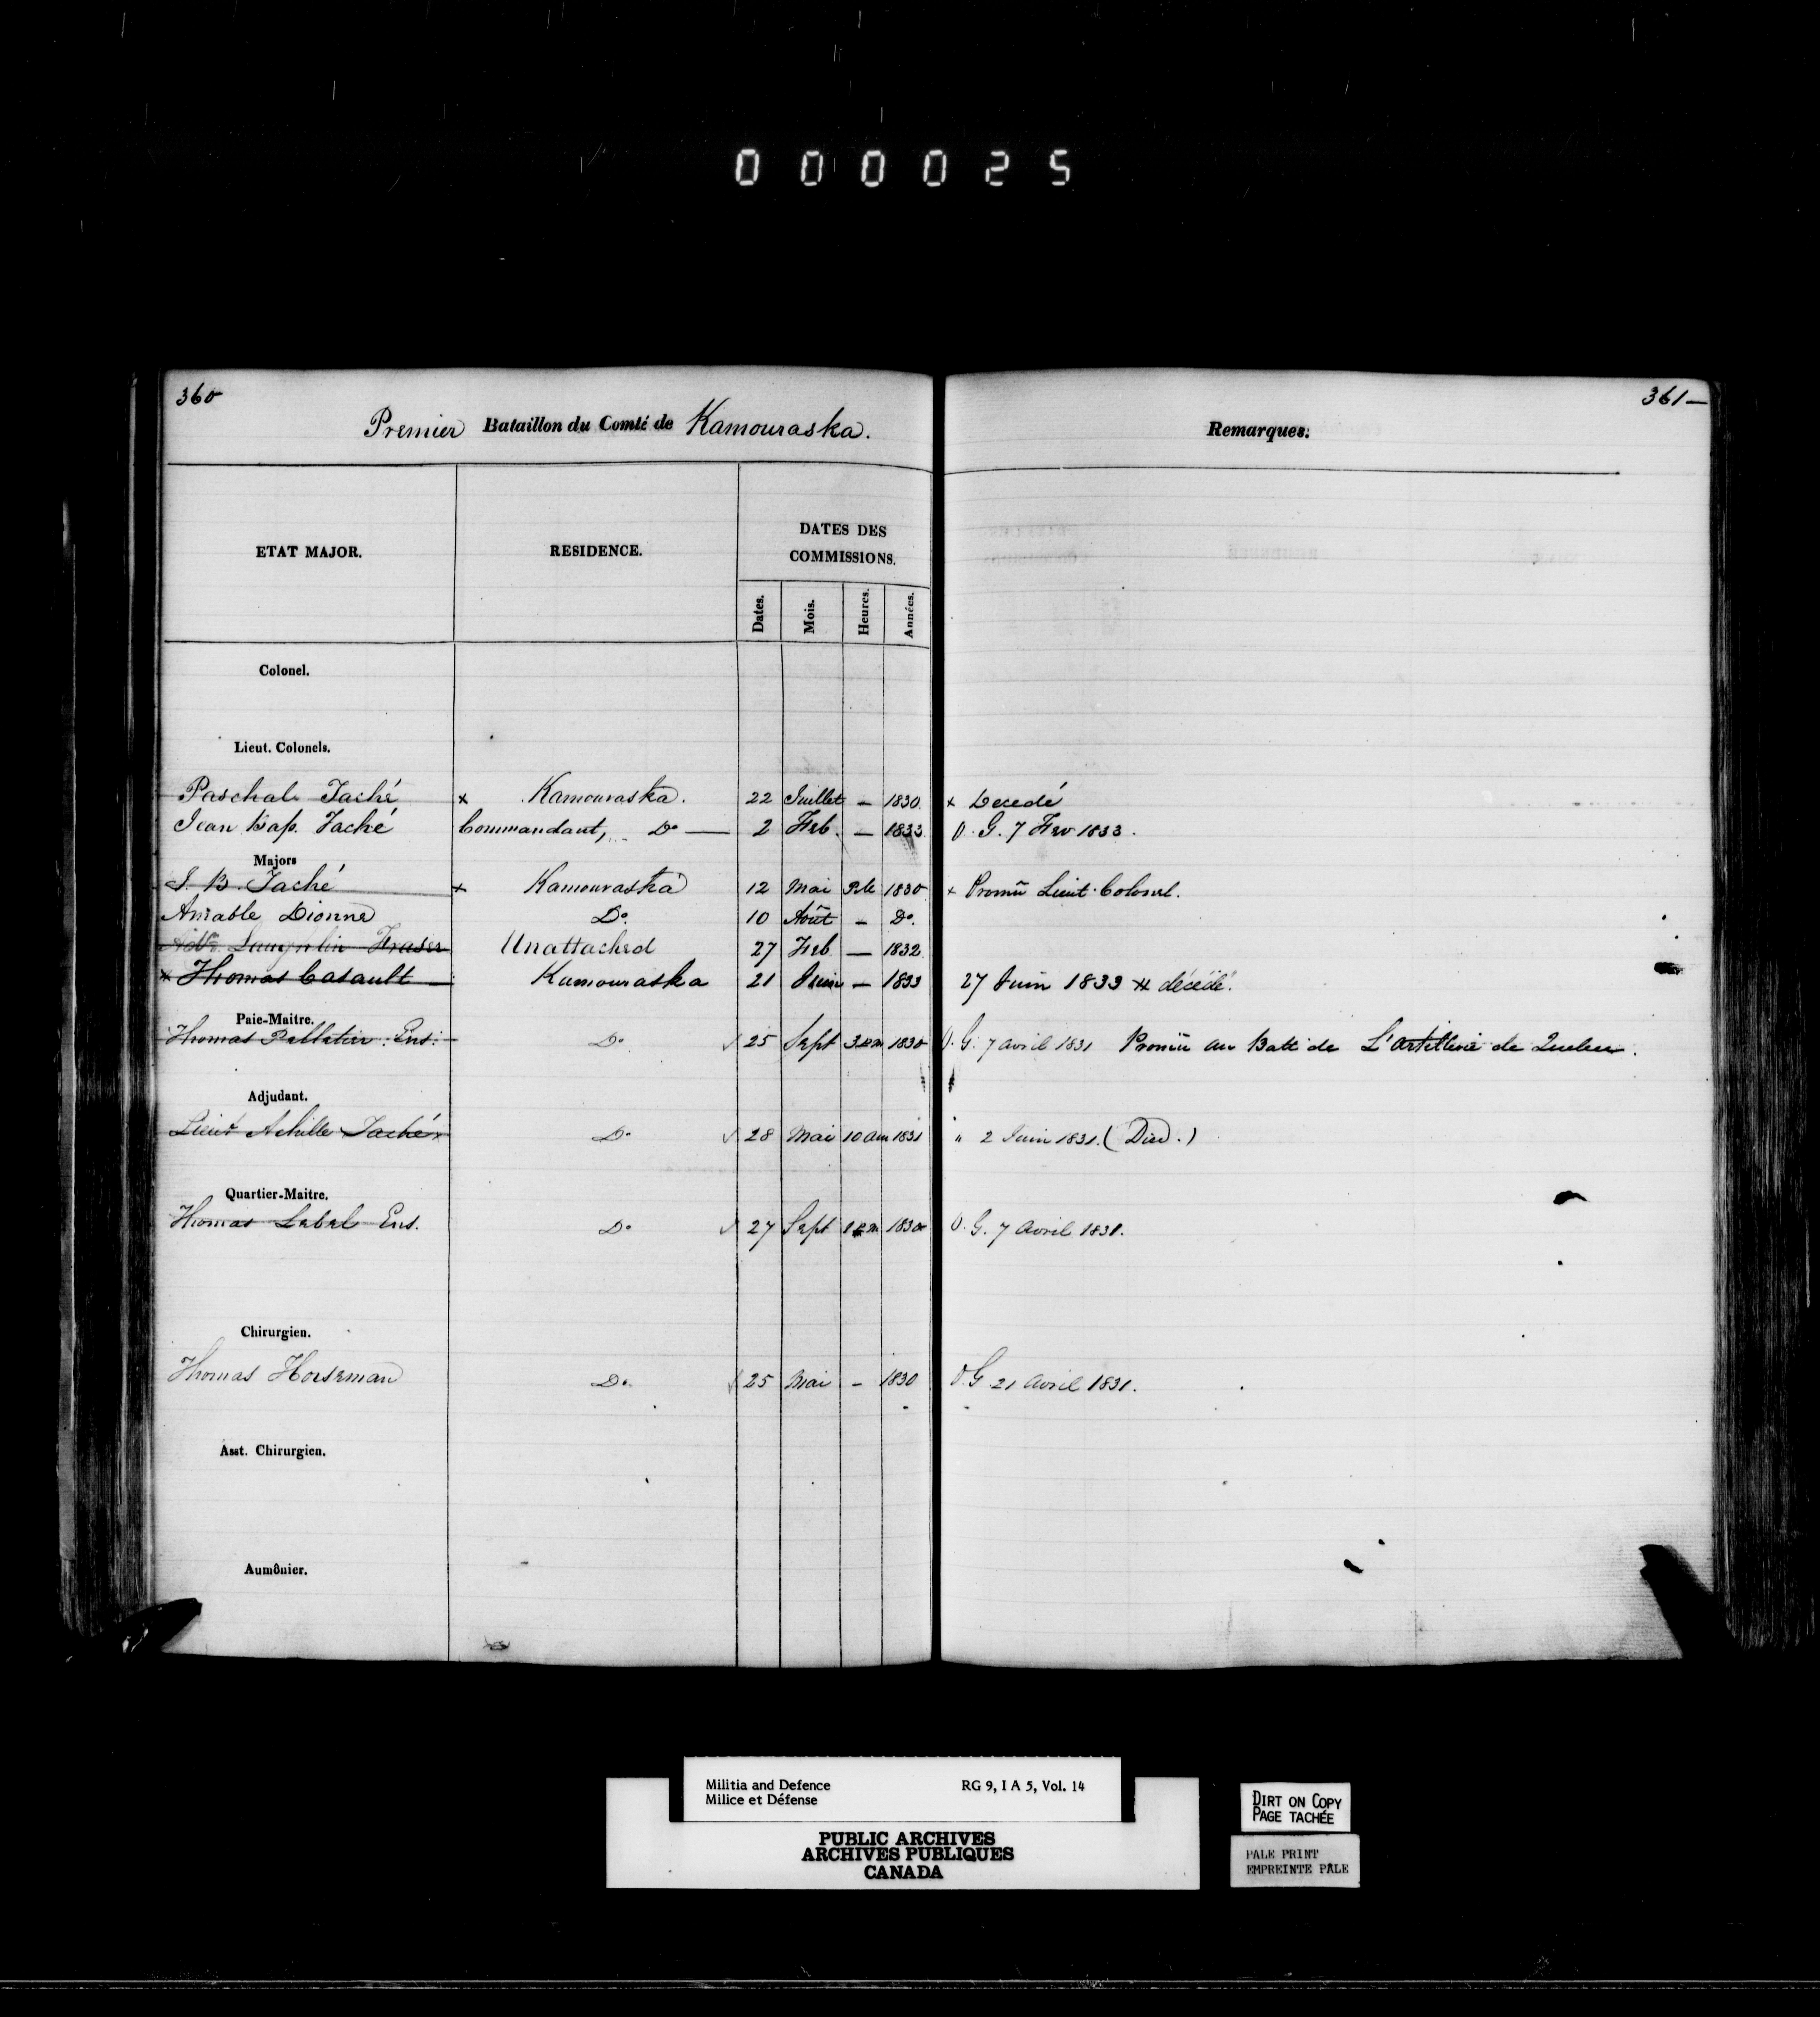 000025
360
Premier Bataillon du Comté de Kamouraska.
ETAT MAJOR. RESIDENCE. DATES DES COMMISSIONS.
Dates. Mois. Heures. Années.
Colonel.
Lieut. Colonels.
Paschal Taché x Kamouraska. 22 Juillet — 1830.
Jean Bap. Taché Commandant, Do — 2 Feb. — 1833
Majors
J. B. Taché x Kamouraska 12 Mai 1830
Amable Dionne Do. 10 Août — Do.
Laughlin Fraser Unattached 27 Feb — 1832
x Thomas Casault — Kamouraska 21 Juin — 1833
Paie-Maitre.
Thomas Pelletier. Ens: Do 25 Sept 1830
Adjudant.
Lieut Achille Taché x Do 28 Mai 10 am 1831
Quartier-Maitre.
Thomas Lebel Ens. Do 27 Sept 1830
Chirurgien.
Thomas Horseman Do. 25 Mai — 1830
Asst. Chirurgien.
Aumônier.
361—
Remarques:
x Decedé
O. G. 7 Fev 1833.
x Promû Lieut. Colonel.
27 Juin 1833 décédé.
O. G. 7 avril 1831 Promû au Batt de L'artillerie de Quebec.
" 2 Juin 1831. (Died.)
O. G. 7 Avril 1831.
O. G 21 Avril 1831.
Militia and Defence RG 9, I A 5, Vol. 14
Milice et Défense
PUBLIC ARCHIVES
ARCHIVES PUBLIQUES
CANADA
DIRT ON COPY
PAGE TACHÉE
PALE PRINT
EMPREINTE PÂLE